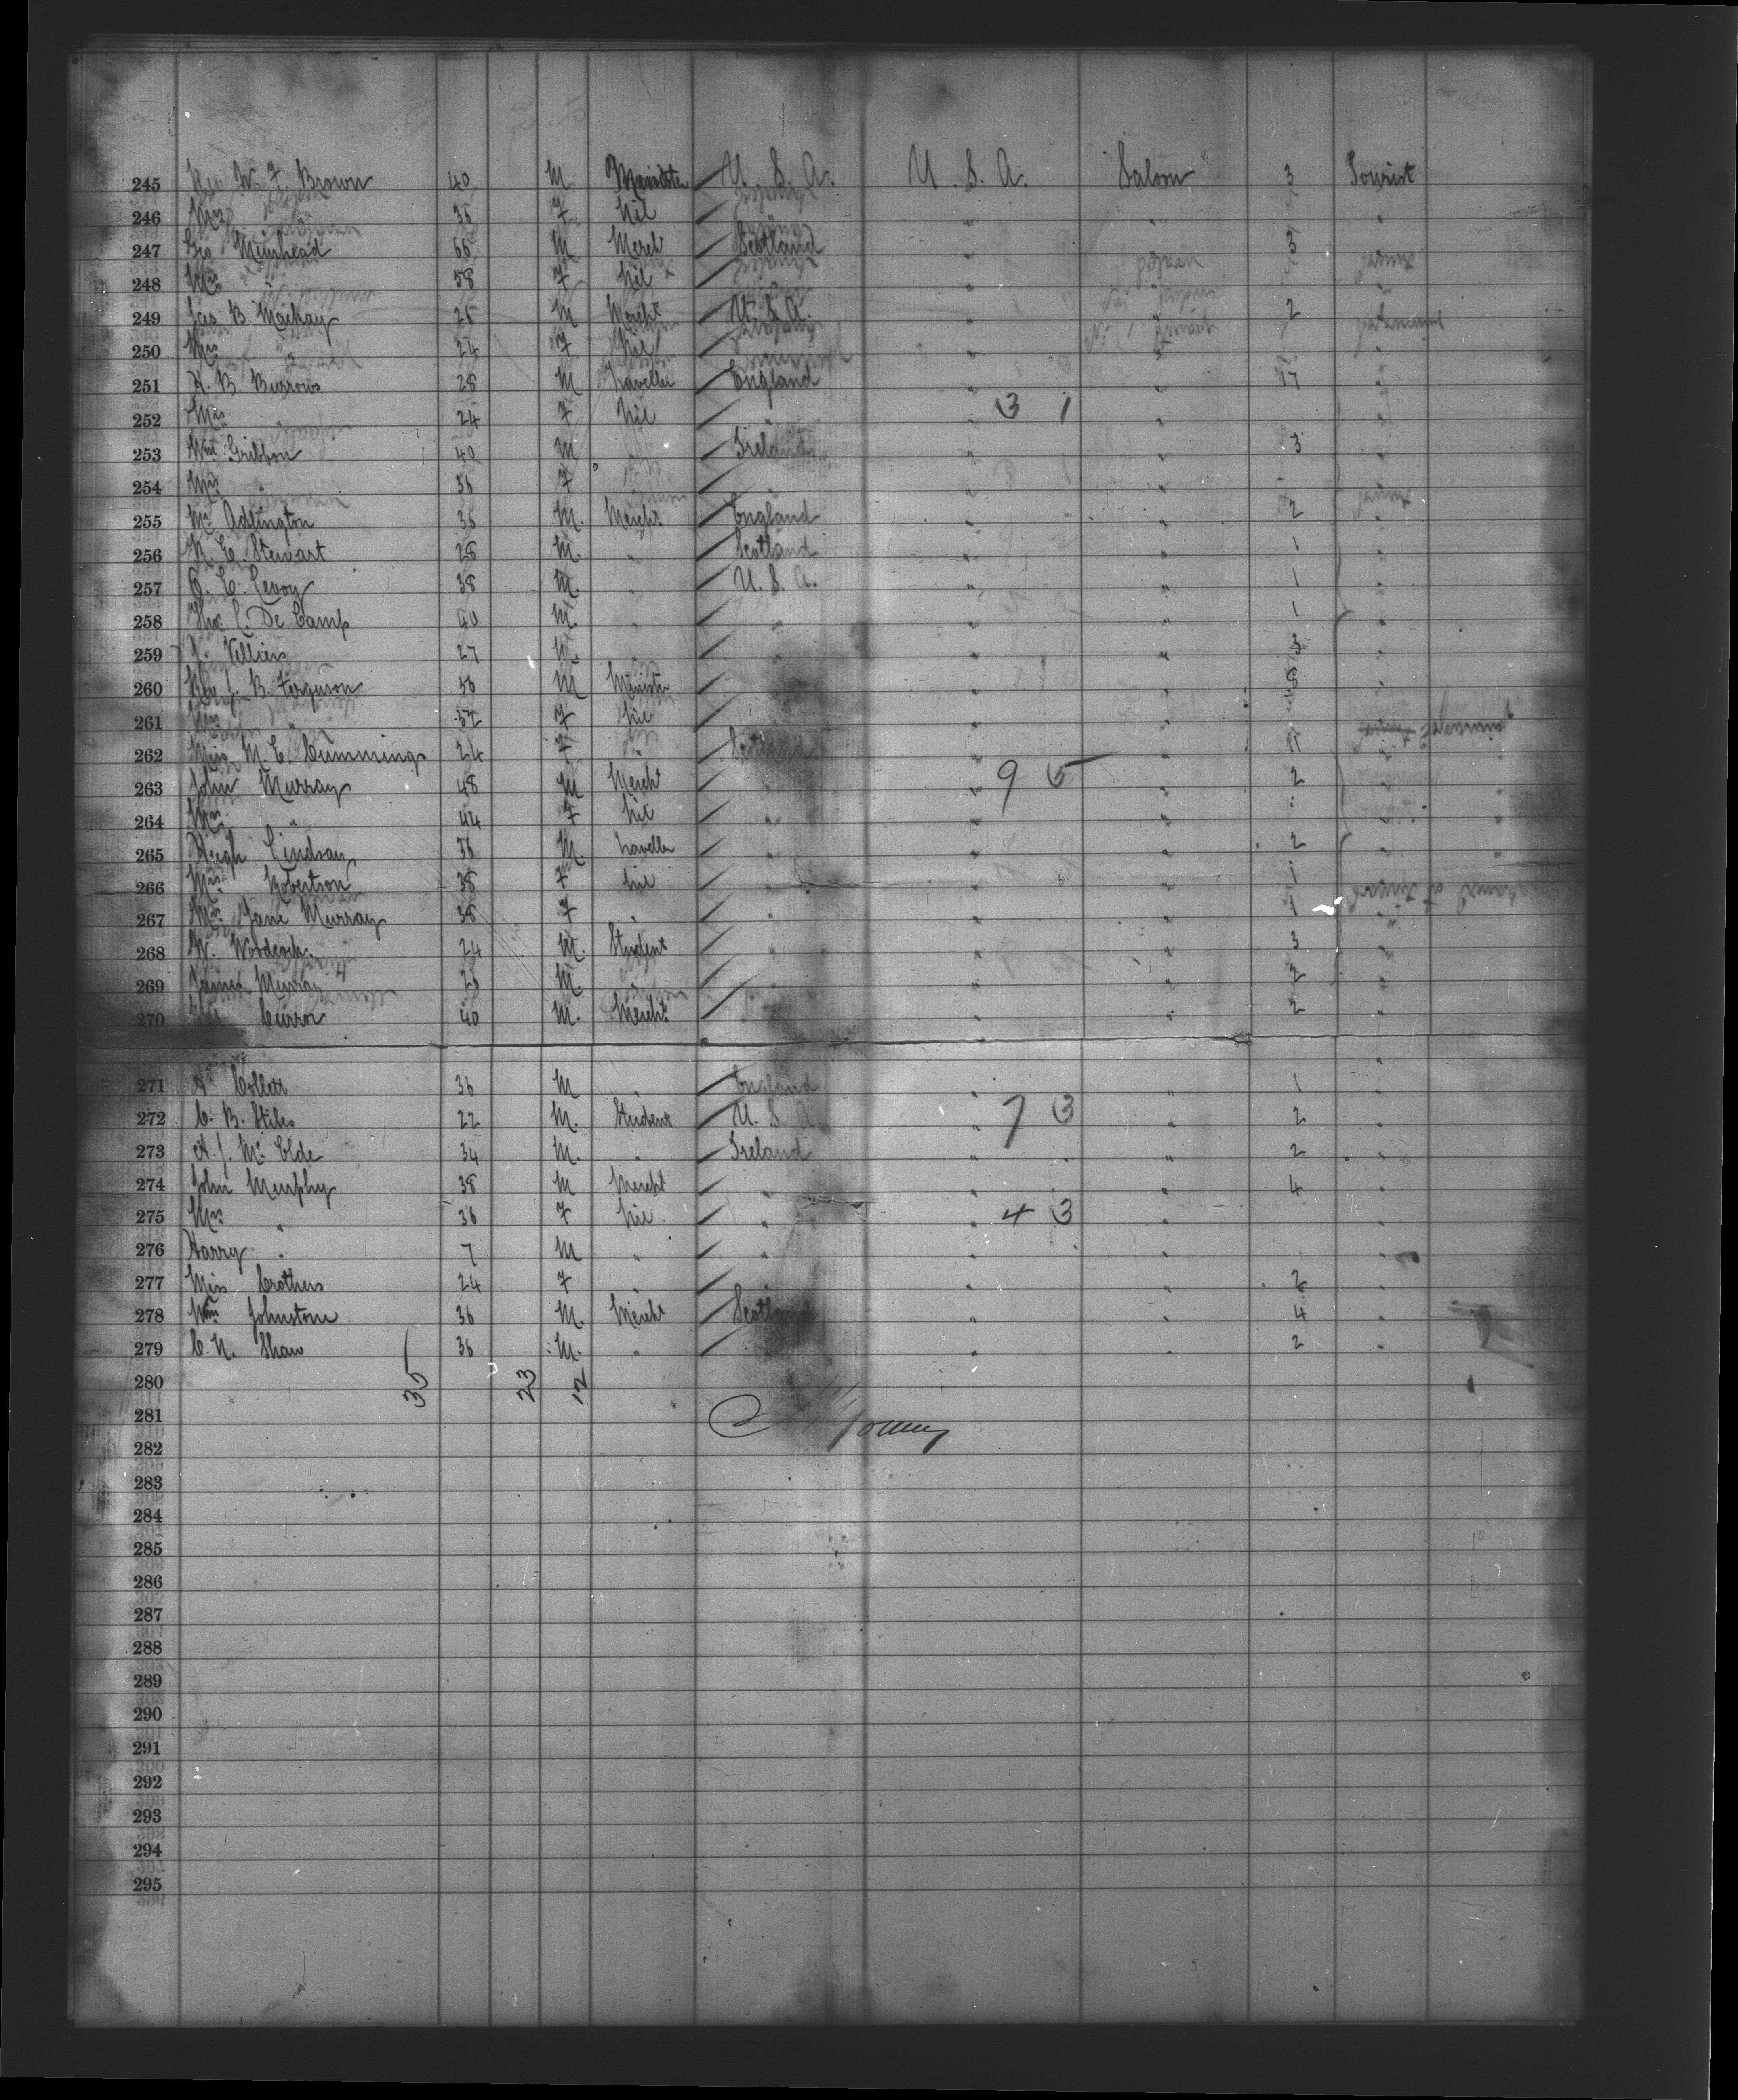 245 Rev W. F. Brown 40 M Minister U. S. A. U. S. A. Saloon 3 Tourist
246 Mrs " 36 F Nil " " " "
247 Geo Muirhead 66 M Mercht Scotland " " 3 "
248 Mrs " 58 F Nil " " " "
249 Jas B Mackay 26 M Mercht U. S. A. " " 2 "
250 Mrs " 24 F Nil " " " "
251 A. B. Burrows 28 M Traveller England " " 17 "
252 Mrs " 24 F Nil " " 3 1 " "
253 Wm Gribbon 40 M " Ireland " " 3 "
254 Mrs " 36 F " " " " " "
255 Mr Adlington 36 M. Mercht England " " 2 "
256 R. C. Stewart 28 M. " Scotland " " 1 "
257 38 M. " U. S. A. " " 1 "
258 De Camp 40 M. " " " " 1 "
259 J. Villiers 27 M. " " " " 3 "
260 Rev J. B. Ferguson 56 M Minister " " " 8 "
261 Mrs " 52 F Nil " " " " "
262 Miss M. E. Cummings 24 F " Scotland " " 11 "
263 John Murray 48 M Mercht " " 9 5 " 2 "
264 Mrs " 44 F Nil " " " " "
265 Hugh Lindsay 36 M. Traveller " " " 2 "
266 Mrs Robertson 38 F Nil " " " 1 "
267 Mrs Jane Murray 38 F " " " " 1 "
268 W. Woodcock 24 M. Student " " " 3 "
269 James Murray 23 M. " " " " 2 "
270 Curror 40 M. Mercht " " " 2 "
271 A Collett 36 M " England " " 1 "
272 C. B. Stiles 22 M. Student U. S. A " 7 3 " 2 "
273 A. J. Mc Elde 34 M. " Ireland " " 2 "
274 John Murphy 38 M Mercht " " " 4 "
275 Mrs " 36 F Nil " " 4 3 " "
276 Harry " 7 M " " " " "
277 Miss Crothers 24 F " " " " 2 "
278 Wm Johnstone 36 M. Mercht Scotland " " 4 "
279 C. N. Shaw 36 M. " " " " 2 "
280 35 23 12
281 Young
282
283
284
285
286
287
288
289
290
291
292
293
294
295